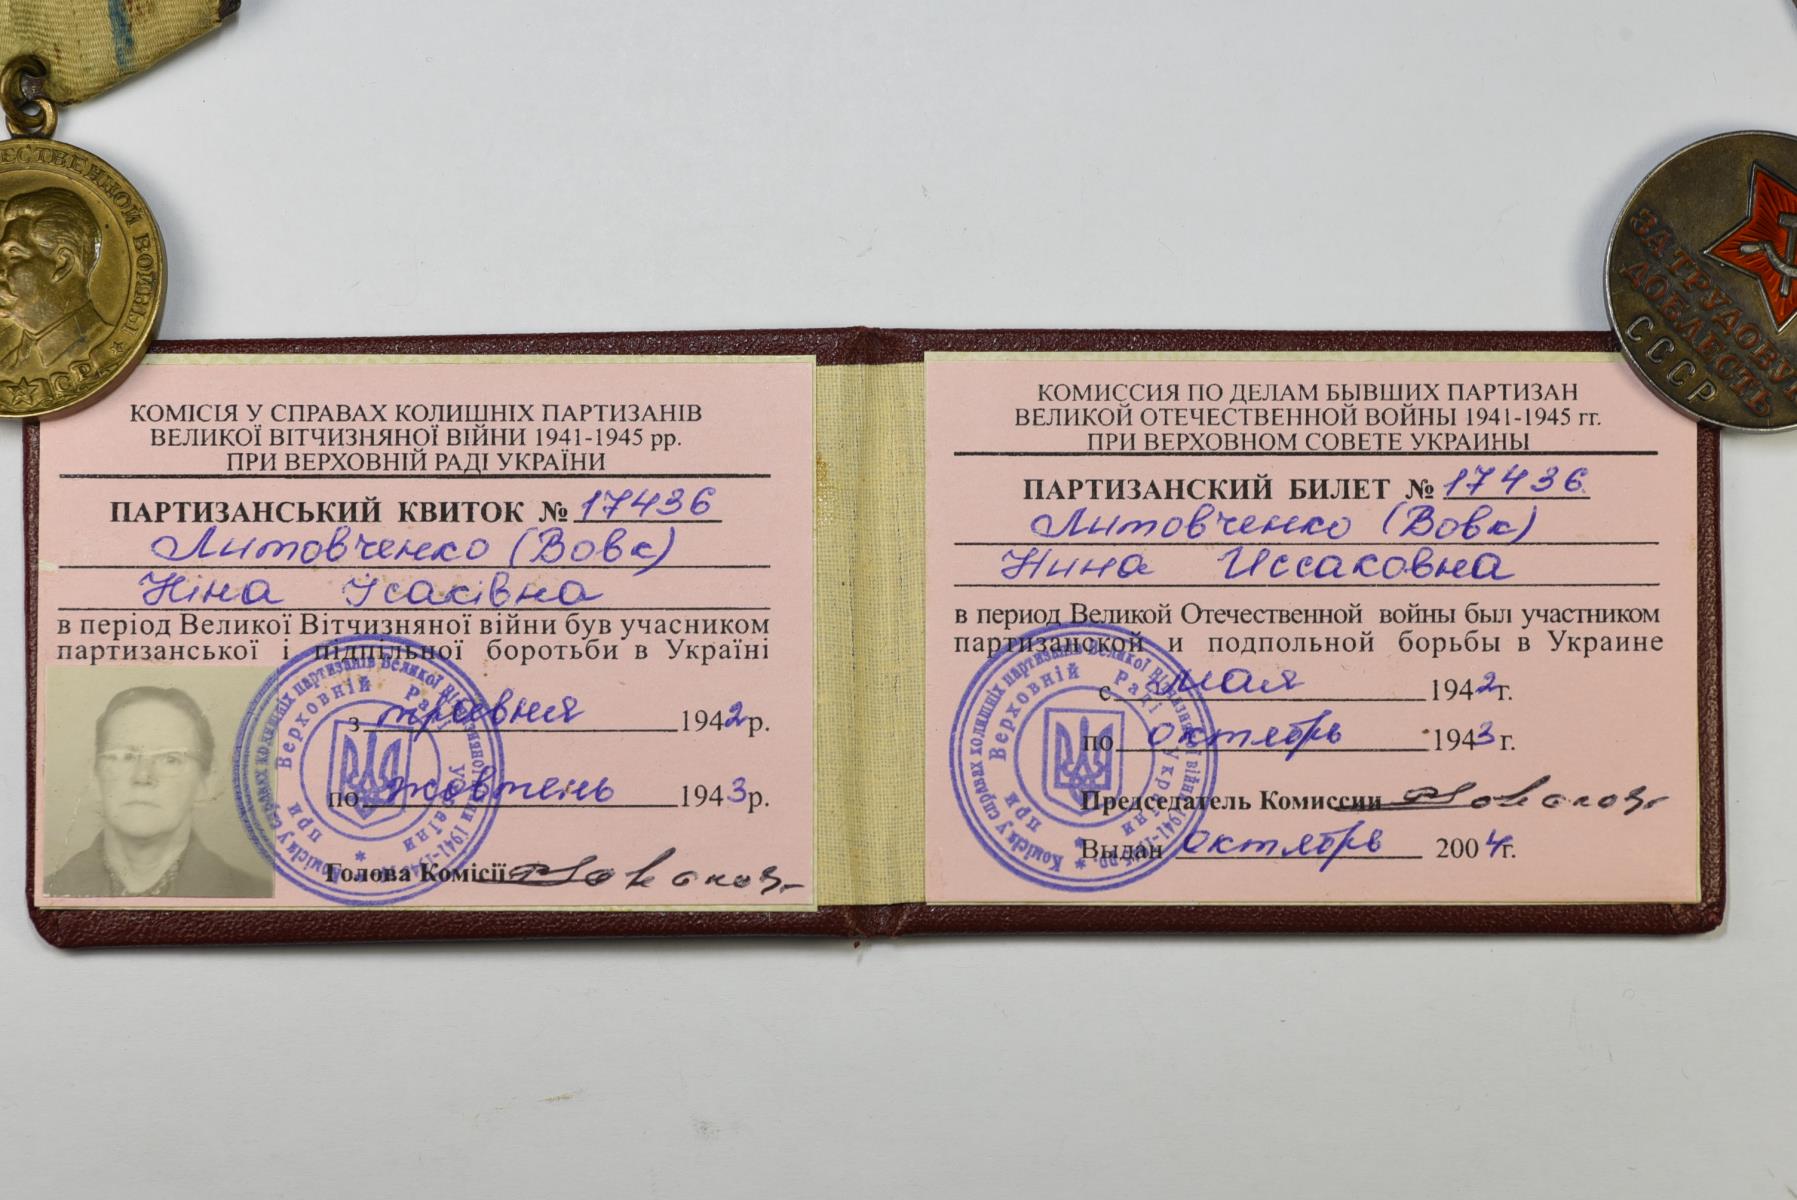 ЕСТВЕННОЙ ВОЙНЫ
ЗА ТРУДОВУЮ
ДОБЛЕСТЬ
СССР
КОМІСІЯ У СПРАВАХ КОЛИШНІХ ПАРТИЗАНІВ
ВЕЛИКОЇ ВІТЧИЗНЯНОЇ ВІЙНИ 1941-1945 рр.
ПРИ ВЕРХОВНІЙ РАДІ УКРАЇНИ
ПАРТИЗАНСЬКИЙ КВИТОК № 17436
Литовченко (Вовк)
Ніна Ісаківна
в період Великої Вітчизняної війни був учасником
партизанської і підпільної боротьби в Україні
з травня 1942 р.
по жовтень 1943 р.
Голова Комісії
Комісія у справах колишніх партизанів Великої Вітчизняної війни 1941-1945 рр. *
при Верховній Раді України
КОМИССИЯ ПО ДЕЛАМ БЫВШИХ ПАРТИЗАН
ВЕЛИКОЙ ОТЕЧЕСТВЕННОЙ ВОЙНЫ 1941-1945 гг.
ПРИ ВЕРХОВНОМ СОВЕТЕ УКРАИНЫ
ПАРТИЗАНСКИЙ БИЛЕТ № 17436
Литовченко (Вовк)
Нина Иссаковна
в период Великой Отечественной войны был участником
партизанской и подпольной борьбы в Украине
с мая 1942 г.
по октябрь 1943 г.
Председатель Комиссии
Выдан октябрь 2004 г.
Комісія у справах колишніх партизанів Великої Вітчизняної війни 1941-1945 рр. *
при Верховній Раді України